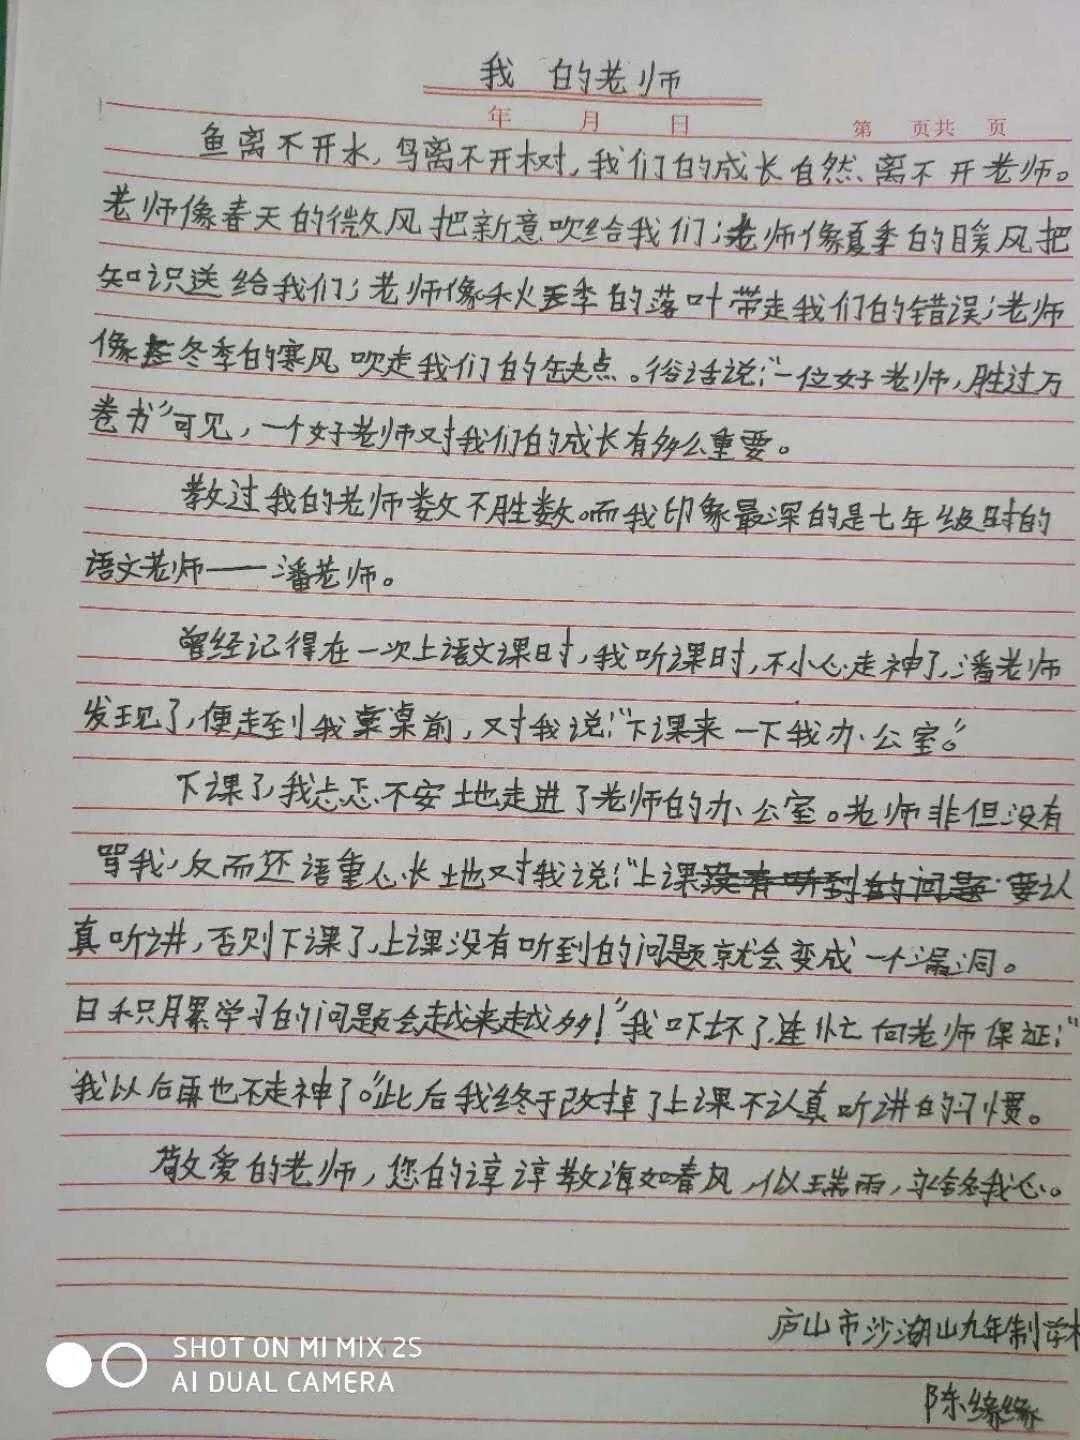 我的老师
年 月 日 第 页共 页
鱼离不开水,鸟离不开树,我们的成长自然、离不开老师。
老师像春天的微风把新意吹给我们;老师像夏季的暖风把
知识送给我们;老师像秋季的落叶带走我们的错误;老师
像冬季的寒风吹走我们的缺点。俗话说:“一位好老师,胜过万
卷书”可见,一个好老师对我们的成长有多么重要。
教过我的老师数不胜数。而我印象最深的是七年级时的
语文老师——潘老师。
曾经记得在一次上语文课时,我听课时,不小心走神了,潘老师
发现了,便走到我桌前,对我说:“下课来一下我办公室。”
下课了,我忐忑不安地走进了老师的办公室。老师非但没有
骂我,反而还语重心长地对我说:“上课要认
真听讲,否则下课了,上课没有听到的问题就会变成一个漏洞。
日积月累学习的问题会越来越多!”我吓坏了,连忙向老师保证:“
我以后再也不走神了。”此后我终于改掉了上课不认真听讲的习惯。
敬爱的老师,您的谆谆教诲如春风,似瑞雨,永铭我心。
庐山市沙湖山九年制学校
陈缘缘
SHOT ON MI MIX 2S
AI DUAL CAMERA